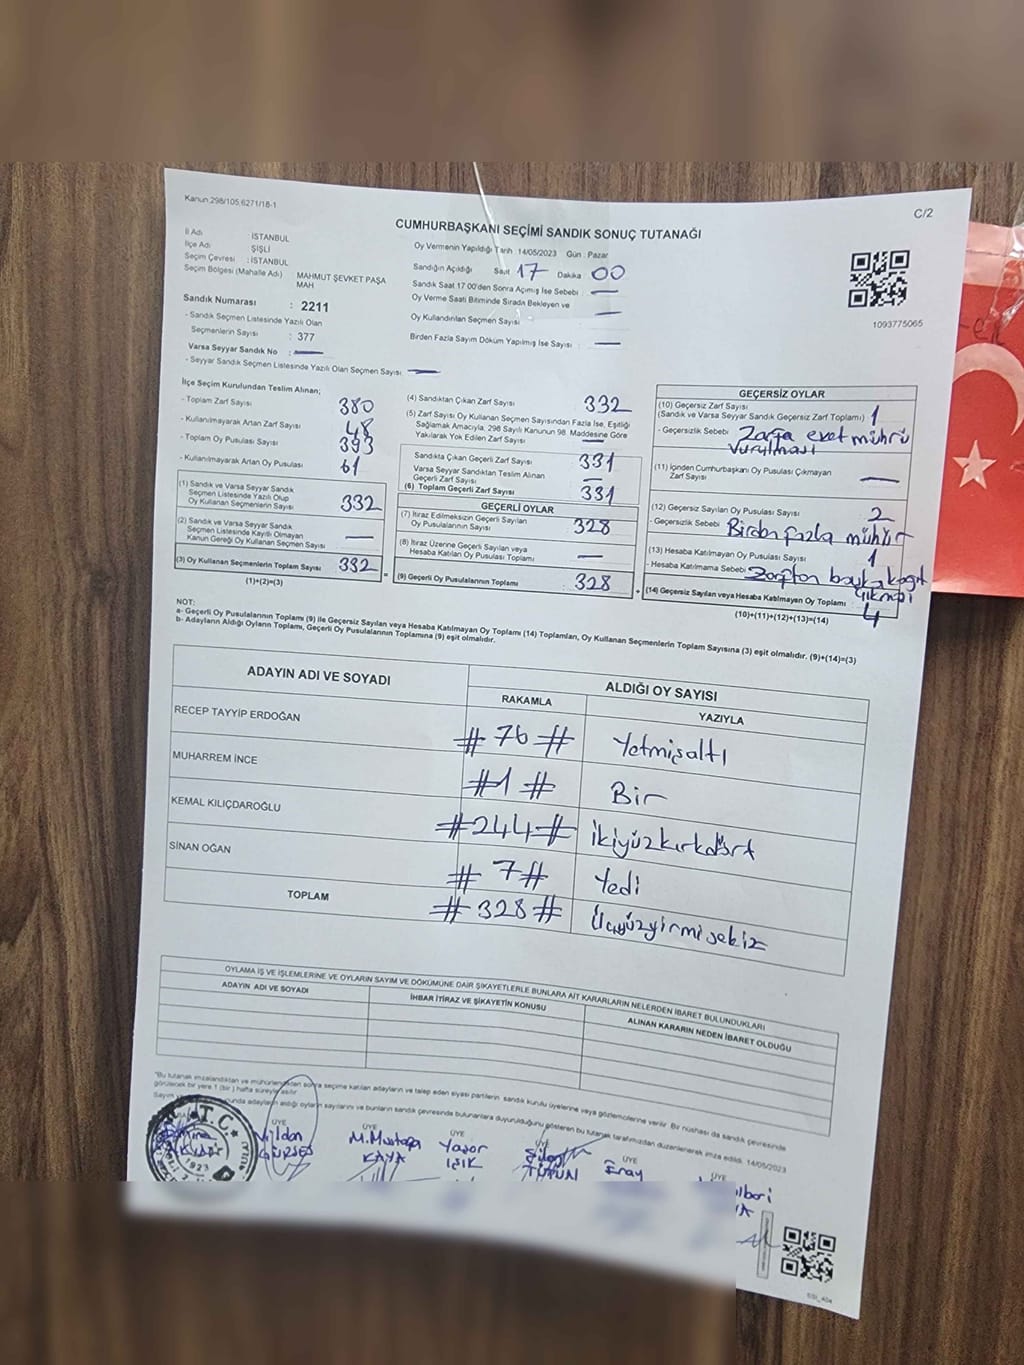 Kanun:298/105,6271/18-1
C/2
CUMHURBAŞKANI SEÇİMİ SANDIK SONUÇ TUTANAĞI
İl Adı : İSTANBUL
İlçe Adı : ŞİŞLİ
Seçim Çevresi : İSTANBUL
Seçim Bölgesi (Mahalle Adı) MAHMUT ŞEVKET PAŞA MAH
Sandık Numarası : 2211
- Sandık Seçmen Listesinde Yazılı Olan
Seçmenlerin Sayısı : 377
Varsa Seyyar Sandık No : —
- Seyyar Sandık Seçmen Listesinde Yazılı Olan Seçmen Sayısı : —
Oy Vermenin Yapıldığı Tarih :14/05/2023 Gün : Pazar
Sandığın Açıldığı Saat 17 Dakika 00
Sandık Saat 17:00'den Sonra Açımış İse Sebebi : —
Oy Verme Saati Bitiminde Sırada Bekleyen ve
Oy Kullandırılan Seçmen Sayısı : —
Birden Fazla Sayım Döküm Yapılmış İse Sayısı : —
1093775065
İlçe Seçim Kurulundan Teslim Alınan;
- Toplam Zarf Sayısı 380
- Kullanılmayarak Artan Zarf Sayısı 48
- Toplam Oy Pusulası Sayısı 393
- Kullanılmayarak Artan Oy Pusulası 61
(1) Sandık ve Varsa Seyyar Sandık
Seçmen Listesinde Yazılı Olup
Oy Kullanan Seçmenlerin Sayısı 332
(2) Sandık ve Varsa Seyyar Sandık
Seçmen Listesinde Kayıtlı Olmayan
Kanun Gereği Oy Kullanan Seçmen Sayısı —
(3) Oy Kullanan Seçmenlerin Toplam Sayısı 332
(1)+(2)=(3)
(4) Sandıktan Çıkan Zarf Sayısı 332
(5) Zarf Sayısı Oy Kullanan Seçmen Sayısından Fazla İse, Eşitliği
Sağlamak Amacıyla, 298 Sayılı Kanunun 98. Maddesine Göre
Yakılarak Yok Edilen Zarf Sayısı —
Sandıkta Çıkan Geçerli Zarf Sayısı 331
Varsa Seyyar Sandıktan Teslim Alınan
Geçerli Zarf Sayısı —
(6) Toplam Geçerli Zarf Sayısı 331
GEÇERLİ OYLAR
(7) İtiraz Edilmeksizin Geçerli Sayılan
Oy Pusulalarının Sayısı 328
(8) İtiraz Üzerine Geçerli Sayılan veya
Hesaba Katılan Oy Pusulası Toplamı —
= (9) Geçerli Oy Pusulalarının Toplamı : 328 +
GEÇERSİZ OYLAR
(10) Geçersiz Zarf Sayısı
(Sandık ve Varsa Seyyar Sandık Geçersiz Zarf Toplamı) 1
- Geçersizlik Sebebi : Zarfa evet mührü
vurulması
(11) İçinden Cumhurbaşkanı Oy Pusulası Çıkmayan
Zarf Sayısı —
(12) Geçersiz Sayılan Oy Pusulası Sayısı 2
- Geçersizlik Sebebi : Birden fazla mühür
(13) Hesaba Katılmayan Oy Pusulası Sayısı 1
- Hesaba Katılmama Sebebi : Zarftan başka kağıt
çıkması
(14) Geçersiz Sayılan veya Hesaba Katılmayan Oy Toplamı 4
(10)+(11)+(12)+(13)=(14)
NOT:
a- Geçerli Oy Pusulalarının Toplamı (9) ile Geçersiz Sayılan veya Hesaba Katılmayan Oy Toplamı (14) Toplamları, Oy Kullanan Seçmenlerin Toplam Sayısına (3) eşit olmalıdır. (9)+(14)=(3)
b- Adayların Aldığı Oyların Toplamı, Geçerli Oy Pusulalarının Toplamına (9) eşit olmalıdır.
ADAYIN ADI VE SOYADI ALDIĞI OY SAYISI
RAKAMLA YAZIYLA
RECEP TAYYİP ERDOĞAN # 76 # Yetmişaltı
MUHARREM İNCE #1 # Bir
KEMAL KILIÇDAROĞLU #244# ikiyüzkırkdört
SİNAN OĞAN # 7# Yedi
TOPLAM # 328 # üçyüzyirmisekiz
OYLAMA İŞ VE İŞLEMLERİNE VE OYLARIN SAYIM VE DÖKÜMÜNE DAİR ŞİKAYETLERLE BUNLARA AİT KARARLARIN NELERDEN İBARET BULUNDUKLARI
ADAYIN ADI VE SOYADI İHBAR İTİRAZ VE ŞİKAYETİN KONUSU ALINAN KARARIN NEDEN İBARET OLDUĞU
"Bu tutanak imzalandıktan ve mühürlendikten sonra seçime katılan adayların ve talep eden siyasi partilerin sandık kurulu üyelerine veya gözlemcilerine verilir. Bir nüshası da sandık çevresinde
görülecek bir yere 1 (bir) hafta süreyle asılır.
adayların aldığı oyların sayılarını ve bunların sandık çevresinde bulunanlara duyurulduğunu gösteren bu tutanak tarafımızdan düzenlenerek imza edildi. 14/05/2023
T.C.
1923
ÜYE ÜYE ÜYE ÜYE ÜYE ÜYE
Vildan GÜRSES
M.Mustafa KAYA
Yaşar IŞIK
TÜTÜN
Eray